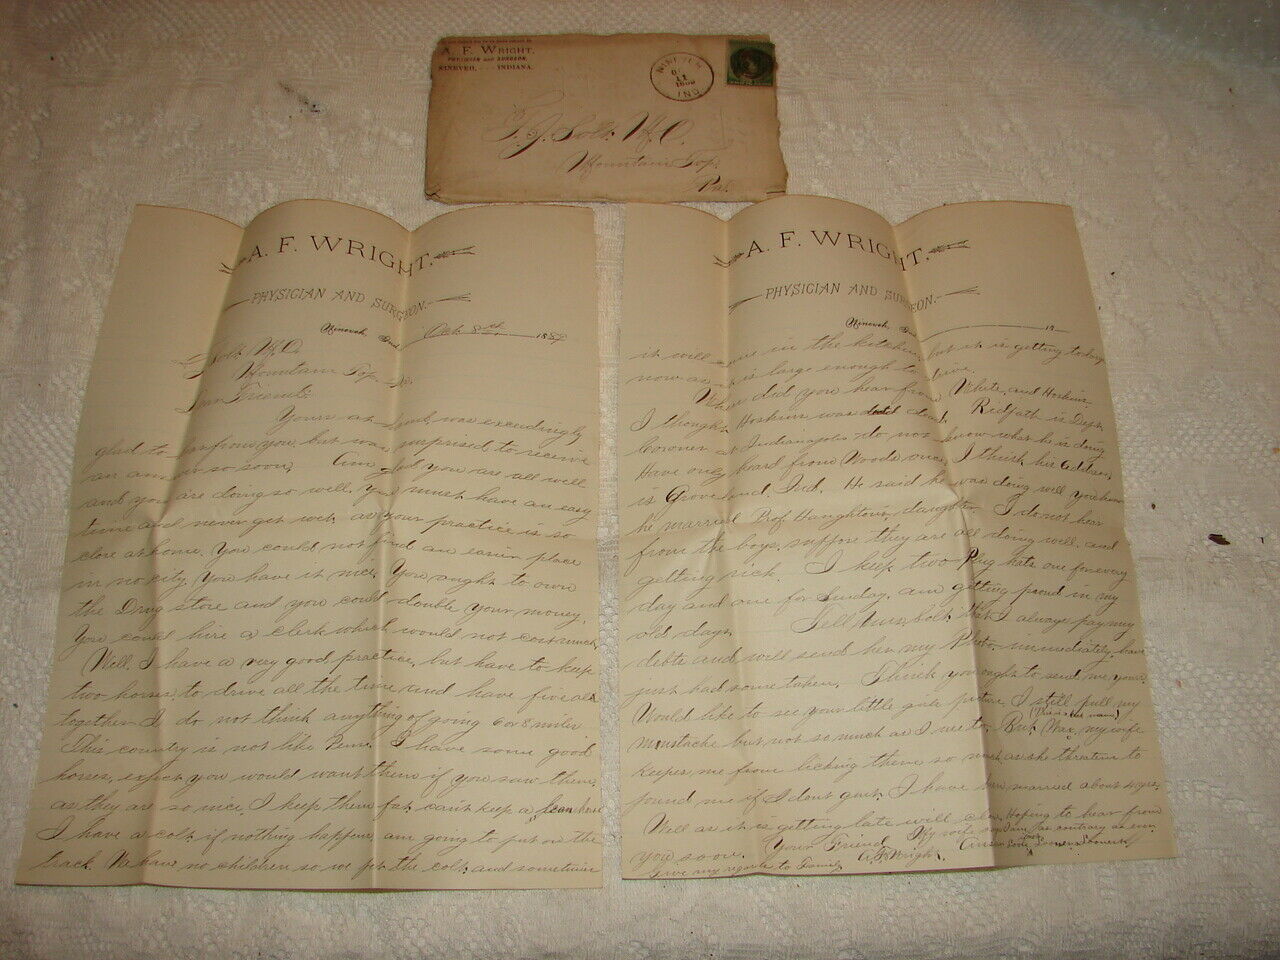 A. F. WRIGHT,
PHYSICIAN AND SURGEON,
NINEVEH, INDIANA.
NINEVEH
11
IND
T. J. Solt M.D.
Mountain Top,
Pa.
A. F. WRIGHT.
PHYSICIAN AND SURGEON.
Nineveh, Ind. Oct. 8th 1889
Solt M.D.
Mountain Top, Pa.
Dear Friend:
Yours at hand, was exceedingly
glad to hear from you, but was surprised to receive
an answer so soon. Am glad you are all well
and you are doing so well, you must have an easy
time and never get wet, as your practice is so
close at home. You could not find an easier place
in no city. You have it nice. You ought to own
the Drug store and you could double your money.
You could hire a clerk which would not cost much.
Well. I have a very good practice, but have to keep
two horses to drive all the time and have five all
together. I do not think anything of going 6 or 8 miles
This country is not like Penn. I have some good
horses, expect you would want them if you saw them,
as they are so nice. I keep them fat, can't keep a lean horse
I have a colt, if nothing happens, am going to put on the
track. We have no children so we pet the colt, and sometimes
A. F. WRIGHT.
PHYSICIAN AND SURGEON.
Nineveh, Ind. 18
it will come in the kitchen, but it is getting to big
now as it is large enough to drive.
When did you hear from White, and Hoskins
I thought Hoskins was dead. Redpath is Dept.
Coroner at Indianapolis do not know what he is doing
Have only heard from Woods once, I think his address
is Groveland, Ind. He said he was doing well you know
he married Prof. Haughton's daughter. I do not hear
from the boys, suppose they are all doing well, and
getting rich. I keep two Plug hats one for every
day and one for Sunday, am getting proud in my
old days. Tell Mrs. Solt, that I always pay my
debts and will send her my Photo immediately, have
just had some taken. Think you ought to send me yours
Would like to see your little girls picture. I still pull my
moustache but not so much as I use to. But Max, my wife
(This is her name)
keeps me from licking them so much as she threatens to
pound me if I dont quit. I have been married about 4 yrs.
Well as it is getting late will close, Hoping to hear from
you soon. Your Friend My wife says I am as contrary as ever
A. F. Wright.
Give my regards to Family